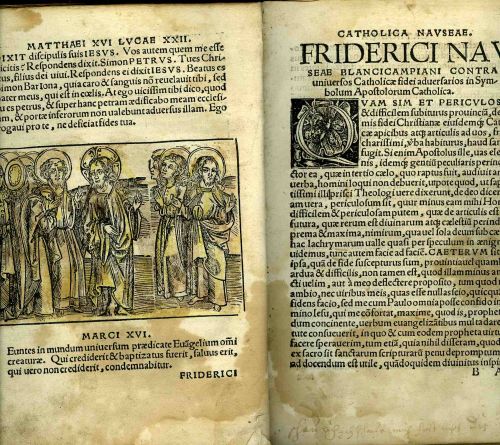 MATTHAEI XVI LVCAE XXII.
DIXIT discipulis suis IESVS. Vos autem quem me esse
dicitis? Respondens dixit. Simon PETRVS. Tu es Chri
stus, filius dei uiui. Respondens ei dixit IESVS. Beatus es
Simon Bariona, quia caro & sanguis nō reuelauit tibi, sed
pater meus, qui est in cœlis. At ego uici ssim tibi dico, quod
tu es petrus, & super hanc petram ædificabo meam eccle
siam, & portæ inferorum non ualebunt aduersus illam. Ego
rogaui pro te, ne deficiat fides tua.
MARCI XVI.
Euntes in mundum uniuersum prædicate Euāgelium omi
creaturæ. Qui crediderit & baptizatus fuerit, saluus erit,
qui uero non crediderit, condemnabitur.
FRIDERICI
CATHOLICA NAVSEAE.
FRIDERICI NAV
SEAE BLANCICAMPIANI CONTRA
uniuersos Catholicæ fidei aduersarios in Sym-
bolum Apostolorum Catholica.
QVAM SIT ET PERICVLOS
& difficilem subiturus prouinciā, de
mis fidei Christianæ eiusdemq; Cat
cæ apicibus atq; articulis ad uos,
charissimi, v̄ba habiturus, haud san
fugit. Si enim Apostolus ille, uas ele
nis, idemq; gentiū peculiaris pericu
stor ea, quæ in tertio cœlo, quo raptus fuit, audiuit ar
uerba, homini loqui non debuerit, utpote quod,
tissimi illi prisci Theologi uere dixerut, de deo dicer
iam uera, periculosum sit, quur minus eam mihi Hom
difficilem & periculosam putem, quæ de articulis rid
futura, quæ rerum est diuinarum atq; cælestiū perind
prema & maxima, nimirum, qua uel sola deum sub cæ
hac lachrymarum ualle quasi per speculum in ænigm
uidemus, tunc autem facie ad faciē. CAETERVM si
ipsa, quā de fide suscepturus sum, prouincia uel quam
ardua & difficilis, non tamen est, quod illam minus an
cti uelim, aut à meo deflectere proposito, tum quod
ambio, nec uiribus meis, quas esse nullas scio, quicqua
fidens facio, sed me cum Paulo omnia posse confido in
mino Iesu, qui me cōfortat, maxime, quod is, prophet
dum concinente, uerbum euangelizātibus multa uirtu
tute consueuerit, in quo & cum eodem propheta uirtut
facere sperauerim, tum etiā, quia nihil disseram, quod
ex sacro sit sanctarum scripturarū penu depromptum
ad docendum est utile, quādoquidem diuinitus inspir
B